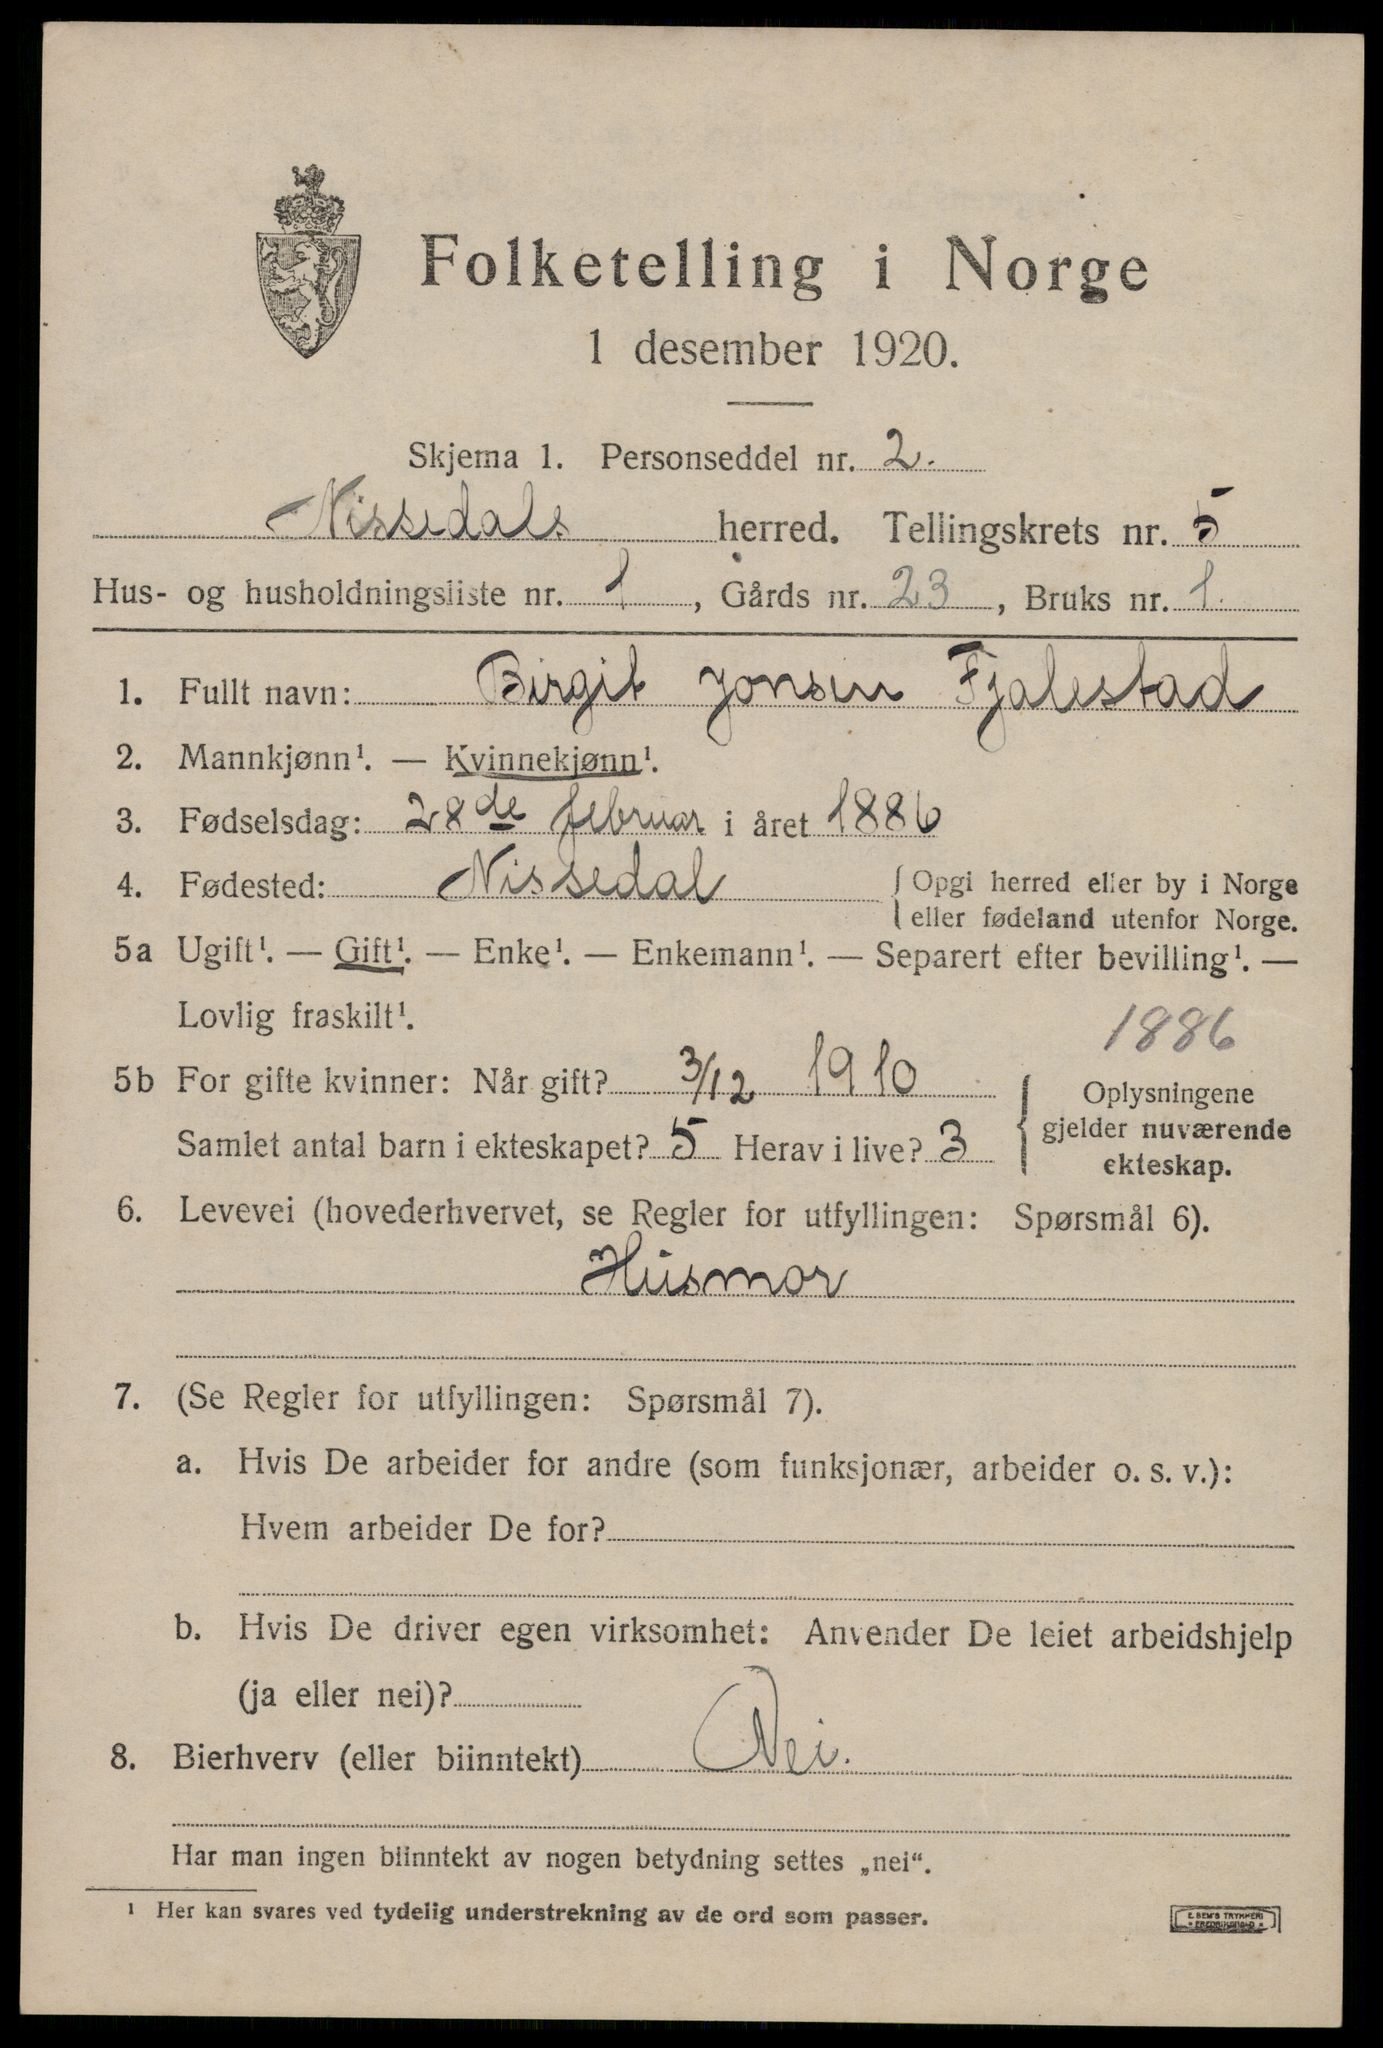 Folketelling i Norge
1 desember 1920.
Skjema 1. Personseddel nr. 2.
Nissedals herred. Tellingskrets nr. 5
Hus- og husholdningsliste nr. 1, Gårds nr. 23, Bruks nr. 1.
1. Fullt navn: Birgit Jonsen Fjalestad
2. Mannkjønn¹. — Kvinnekjønn¹.
3. Fødselsdag: 28de februar i året 1886
4. Fødested: Nissedal {Opgi herred eller by i Norge
eller fødeland utenfor Norge.
5a Ugift¹. — Gift¹. — Enke¹. — Enkemann¹. — Separert efter bevilling¹. —
Lovlig fraskilt¹.
1886
5b For gifte kvinner: Når gift? 3/12 1910
Samlet antal barn i ekteskapet? 5 Herav i live? 3
{Oplysningene
gjelder nuværende
ekteskap.
6. Levevei (hovederhvervet, se Regler for utfyllingen: Spørsmål 6).
Husmor
7. (Se Regler for utfyllingen: Spørsmål 7).
a. Hvis De arbeider for andre (som funksjonær, arbeider o. s. v.):
Hvem arbeider De for?
b. Hvis De driver egen virksomhet: Anvender De leiet arbeidshjelp
(ja eller nei)?
8. Bierhverv (eller biinntekt) Nei.
Har man ingen biinntekt av nogen betydning settes „nei“.
¹ Her kan svares ved tydelig understrekning av de ord som passer.
E. SEM'S TRYKKERI
FREDRIKSHALD